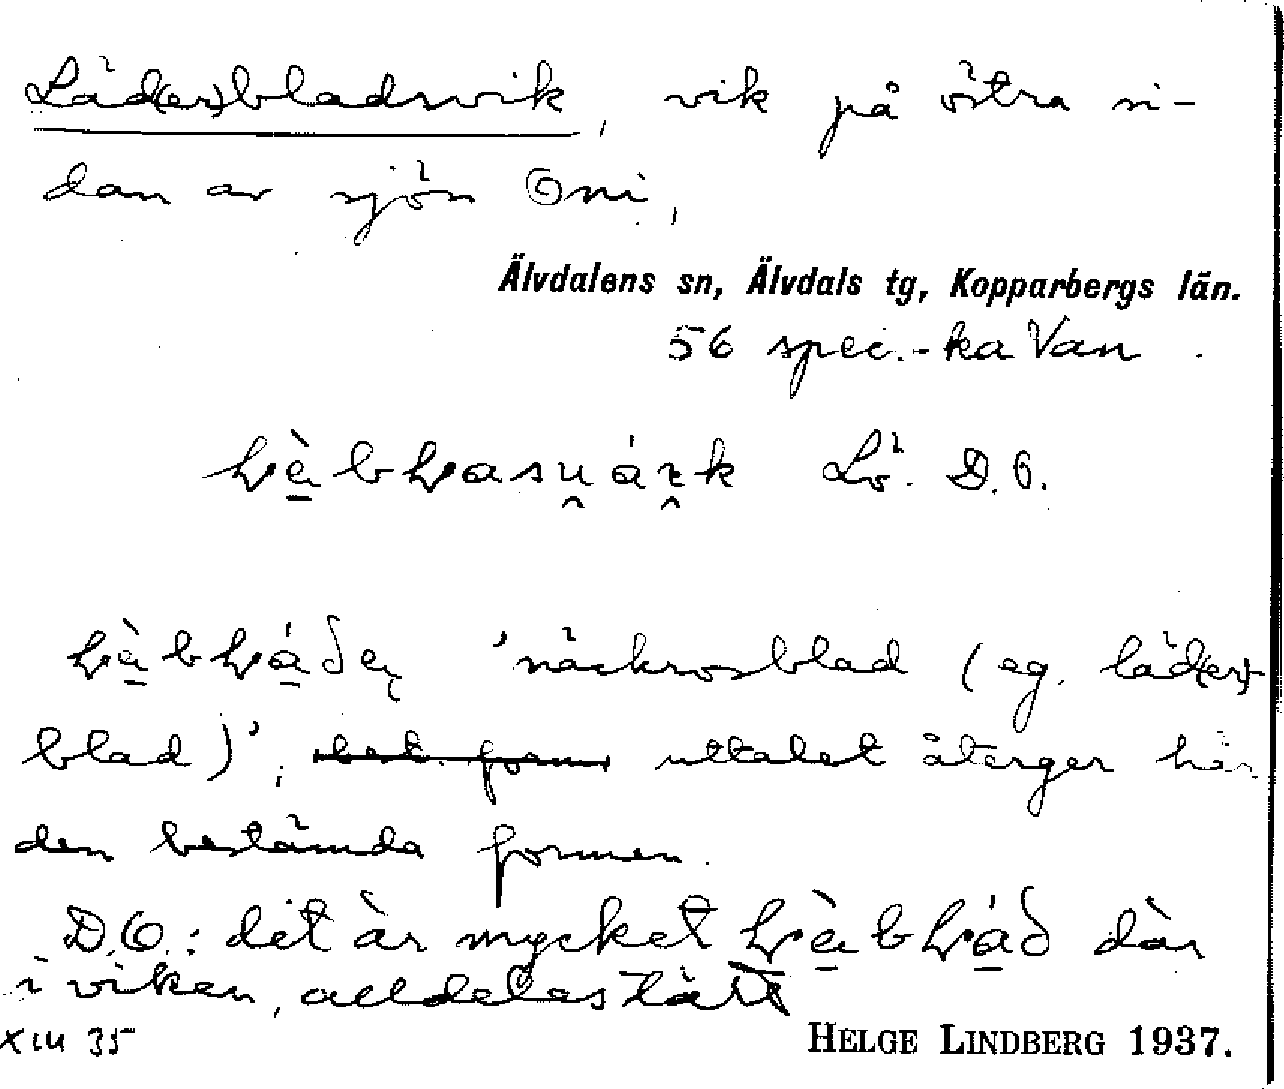 Läd(er)bladsvik, vik på östra si-
dan av sjön Oni,
Älvdalens sn, Älvdals tg, Kopparbergs län.
56 spec.-ka Van
Lö. D.O.
'näckrosblad (eg. läd(er)-
blad)'; best. form uttalet återger här
den bestämda formen.
D.O.: det är mycket där
i viken, alldeles tätt
XIII 35
HELGE LINDBERG 1937.